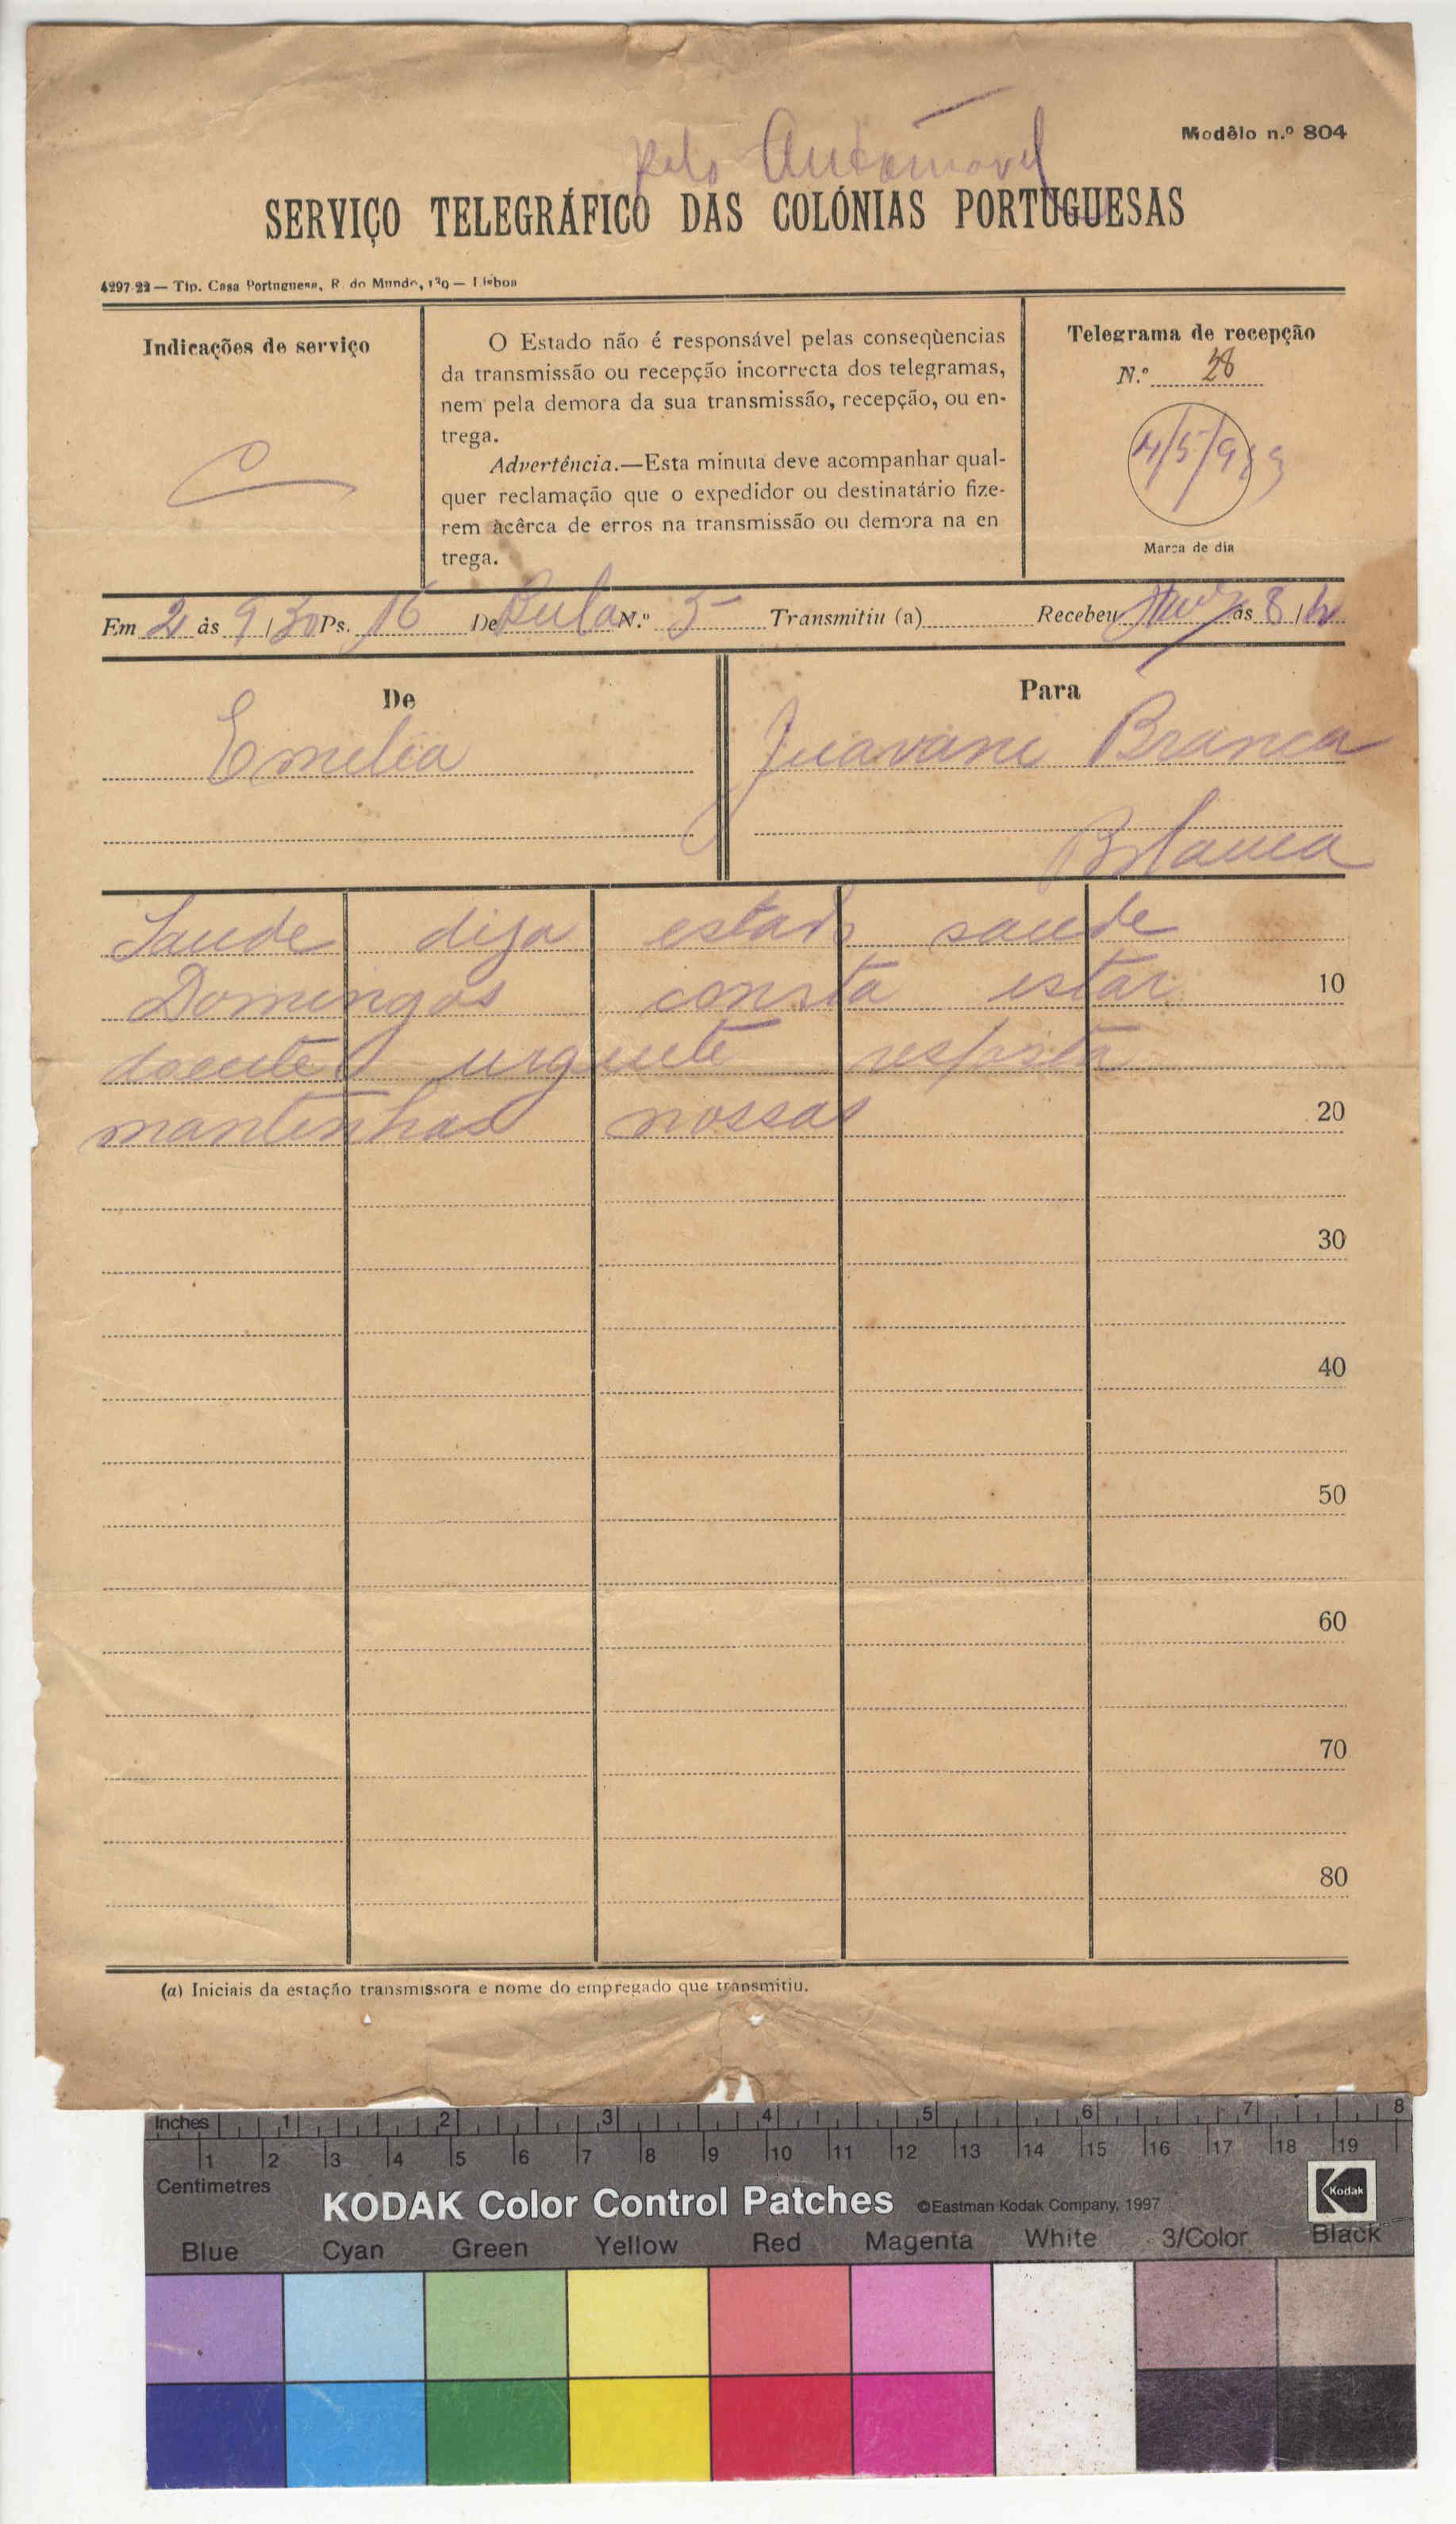 pelo Automovel
Modêlo n.º 804
SERVIÇO TELEGRÁFICO DAS COLÓNIAS PORTUGUESAS
4297-22 — Tip. Casa Portuguesa, R. do Mundo, 139 — Lisboa
Indicações de serviço
O Estado não é responsável pelas conseqüencias
da transmissão ou recepção incorrecta dos telegramas,
nem pela demora da sua transmissão, recepção, ou en-
trega.
Advertência.—Esta minuta deve acompanhar qual-
quer reclamação que o expedidor ou destinatário fize-
rem àcêrca de erros na transmissão ou demora na en
trega.
Telegrama de recepção
N.º 28
4/5/923
Marca de dia
Em 2 às 9/30 Ps. 16 De Bula N.º 5 Transmitiu (a) Recebeu às 8/h
De
Emilia
Para
Juavani Branca
Bolama
Saude diga estado saude
Domingos consta estar
doente urgente resposta
mantenhas nossas
10
20
30
40
50
60
70
80
(a) Iniciais da estação transmissora e nome do empregado que transmitiu.
Inches 1 2 3 4 5 6 7 8
1 2 3 4 5 6 7 8 9 10 11 12 13 14 15 16 17 18 19
Centimetres
KODAK Color Control Patches ©Eastman Kodak Company, 1997 Kodak
Blue Cyan Green Yellow Red Magenta White 3/Color Black